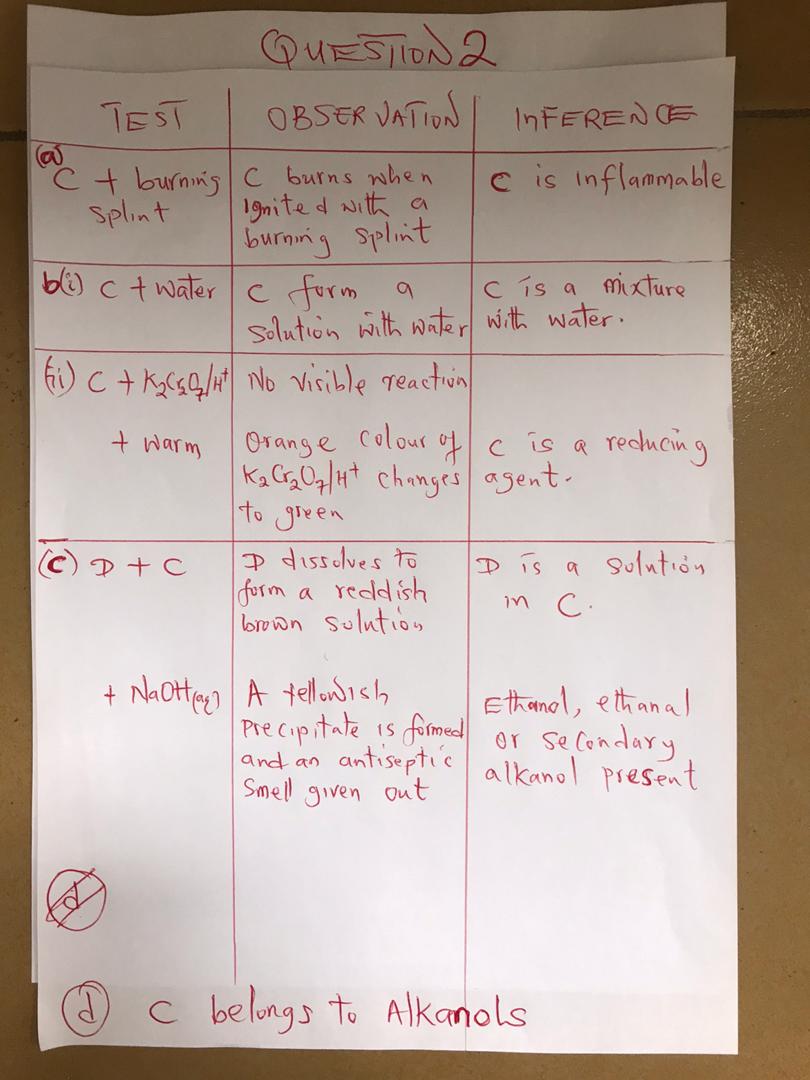 QUESTION 2
TEST OBSERVATION INFERENCE
(a) C + burning splint
C burns when
ignited with a
burning splint
C is inflammable
b(i) C + water
C form a
solution with water
C is a mixture
with water.
(ii) C + K₂Cr₂O₇/H⁺
No visible reaction
+ warm
Orange colour of
K₂Cr₂O₇/H⁺ changes
to green
C is a reducing
agent.
(c) D + C
D dissolves to
form a reddish
brown solution
D is a solution
in C.
+ NaOH(aq)
A yellowish
precipitate is formed
and an antiseptic
smell given out
Ethanol, ethanal
or secondary
alkanol present
d
(d) C belongs to Alkanols